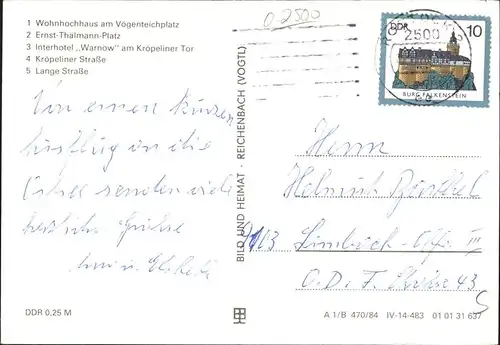 1 Wohnhochhaus am Vögenteichplatz
2 Ernst-Thälmann-Platz
3 Interhotel „Warnow" am Kröpeliner Tor
4 Kröpeliner Straße
5 Lange Straße
Von einem kurzen
Ausflug an die
senden viele
herzliche Grüße
u.
DDR 0,25 M
BILD UND HEIMAT · REICHENBACH (VOGTL)
0 2500
2500
DDR 10
BURG FALKENSTEIN
Herrn
Helmut
9103 Limbach-Ofr. III
O.D.F. 43
5
A 1/B 470/84 IV-14-483 01 01 31 637